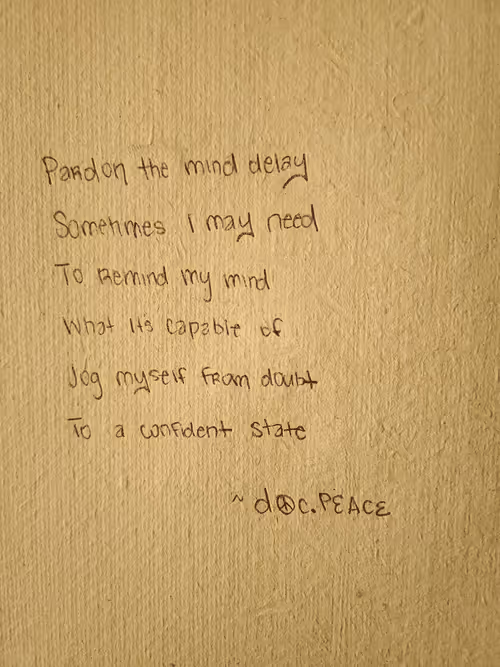 Pardon the mind delay
Sometimes I may need
To Remind my mind
What its capable of
Jog myself from doubt
To a confident State
~ d☮c.PEACE